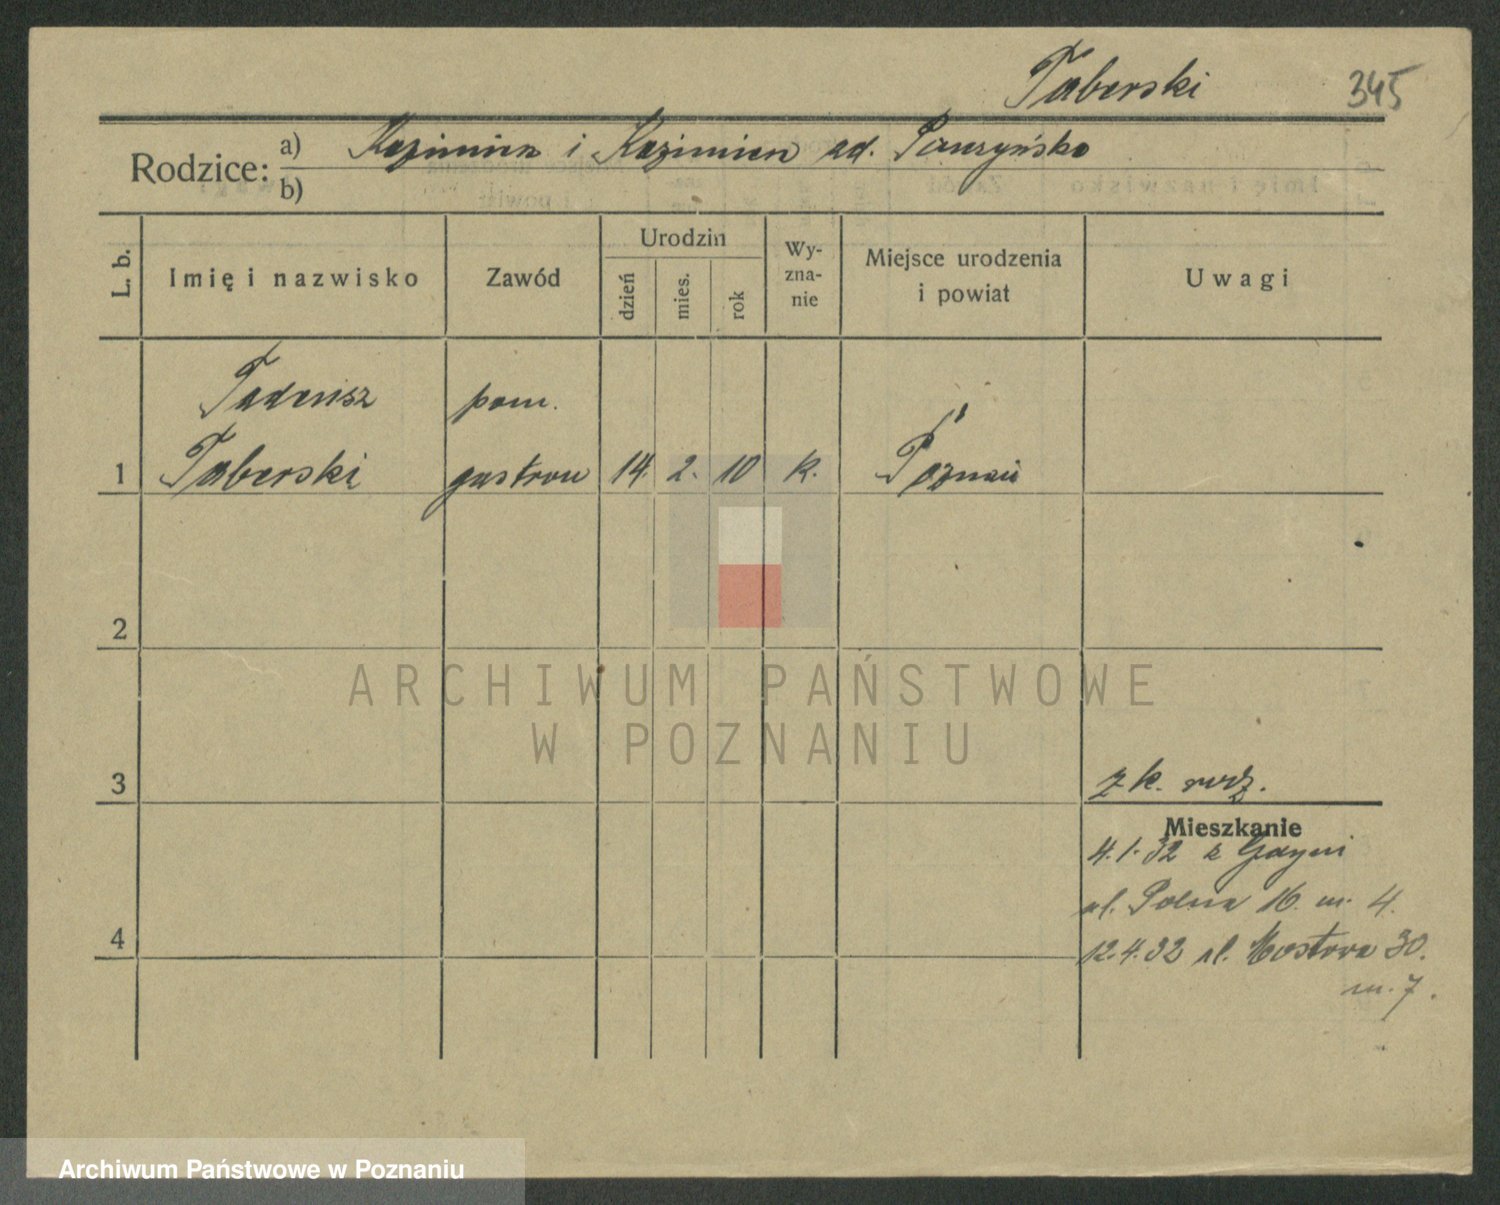 Taberski 345
Rodzice: a) Kazimierz i Kazimiera ad.
b)
L. b. Imię i nazwisko Zawód Urodzin dzień mies. rok Wyznanie Miejsce urodzenia i powiat Uwagi
Tadeusz pom.
1 Taberski gastron 14. 2. 10 k. Poznań
2
ARCHIWUM PAŃSTWOWE
W POZNANIU
3 z k. rodz.
Mieszkanie
4.1.32 z Gdyni
ul. Polna 16. m. 4.
4 12.4.32 ul. Mostowa 30.
m. 7.
Archiwum Państwowe w Poznaniu